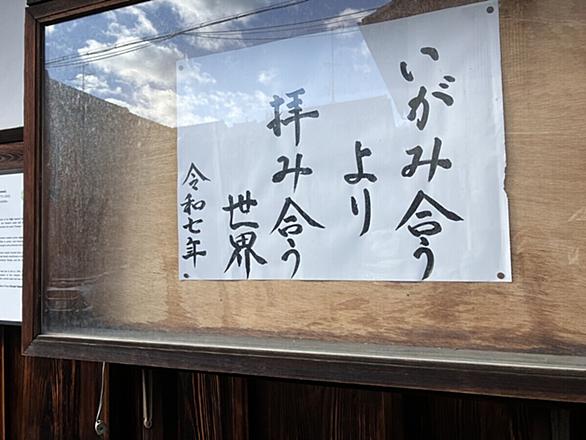 いがみ合う
より
拝み合う
世界
令和七年